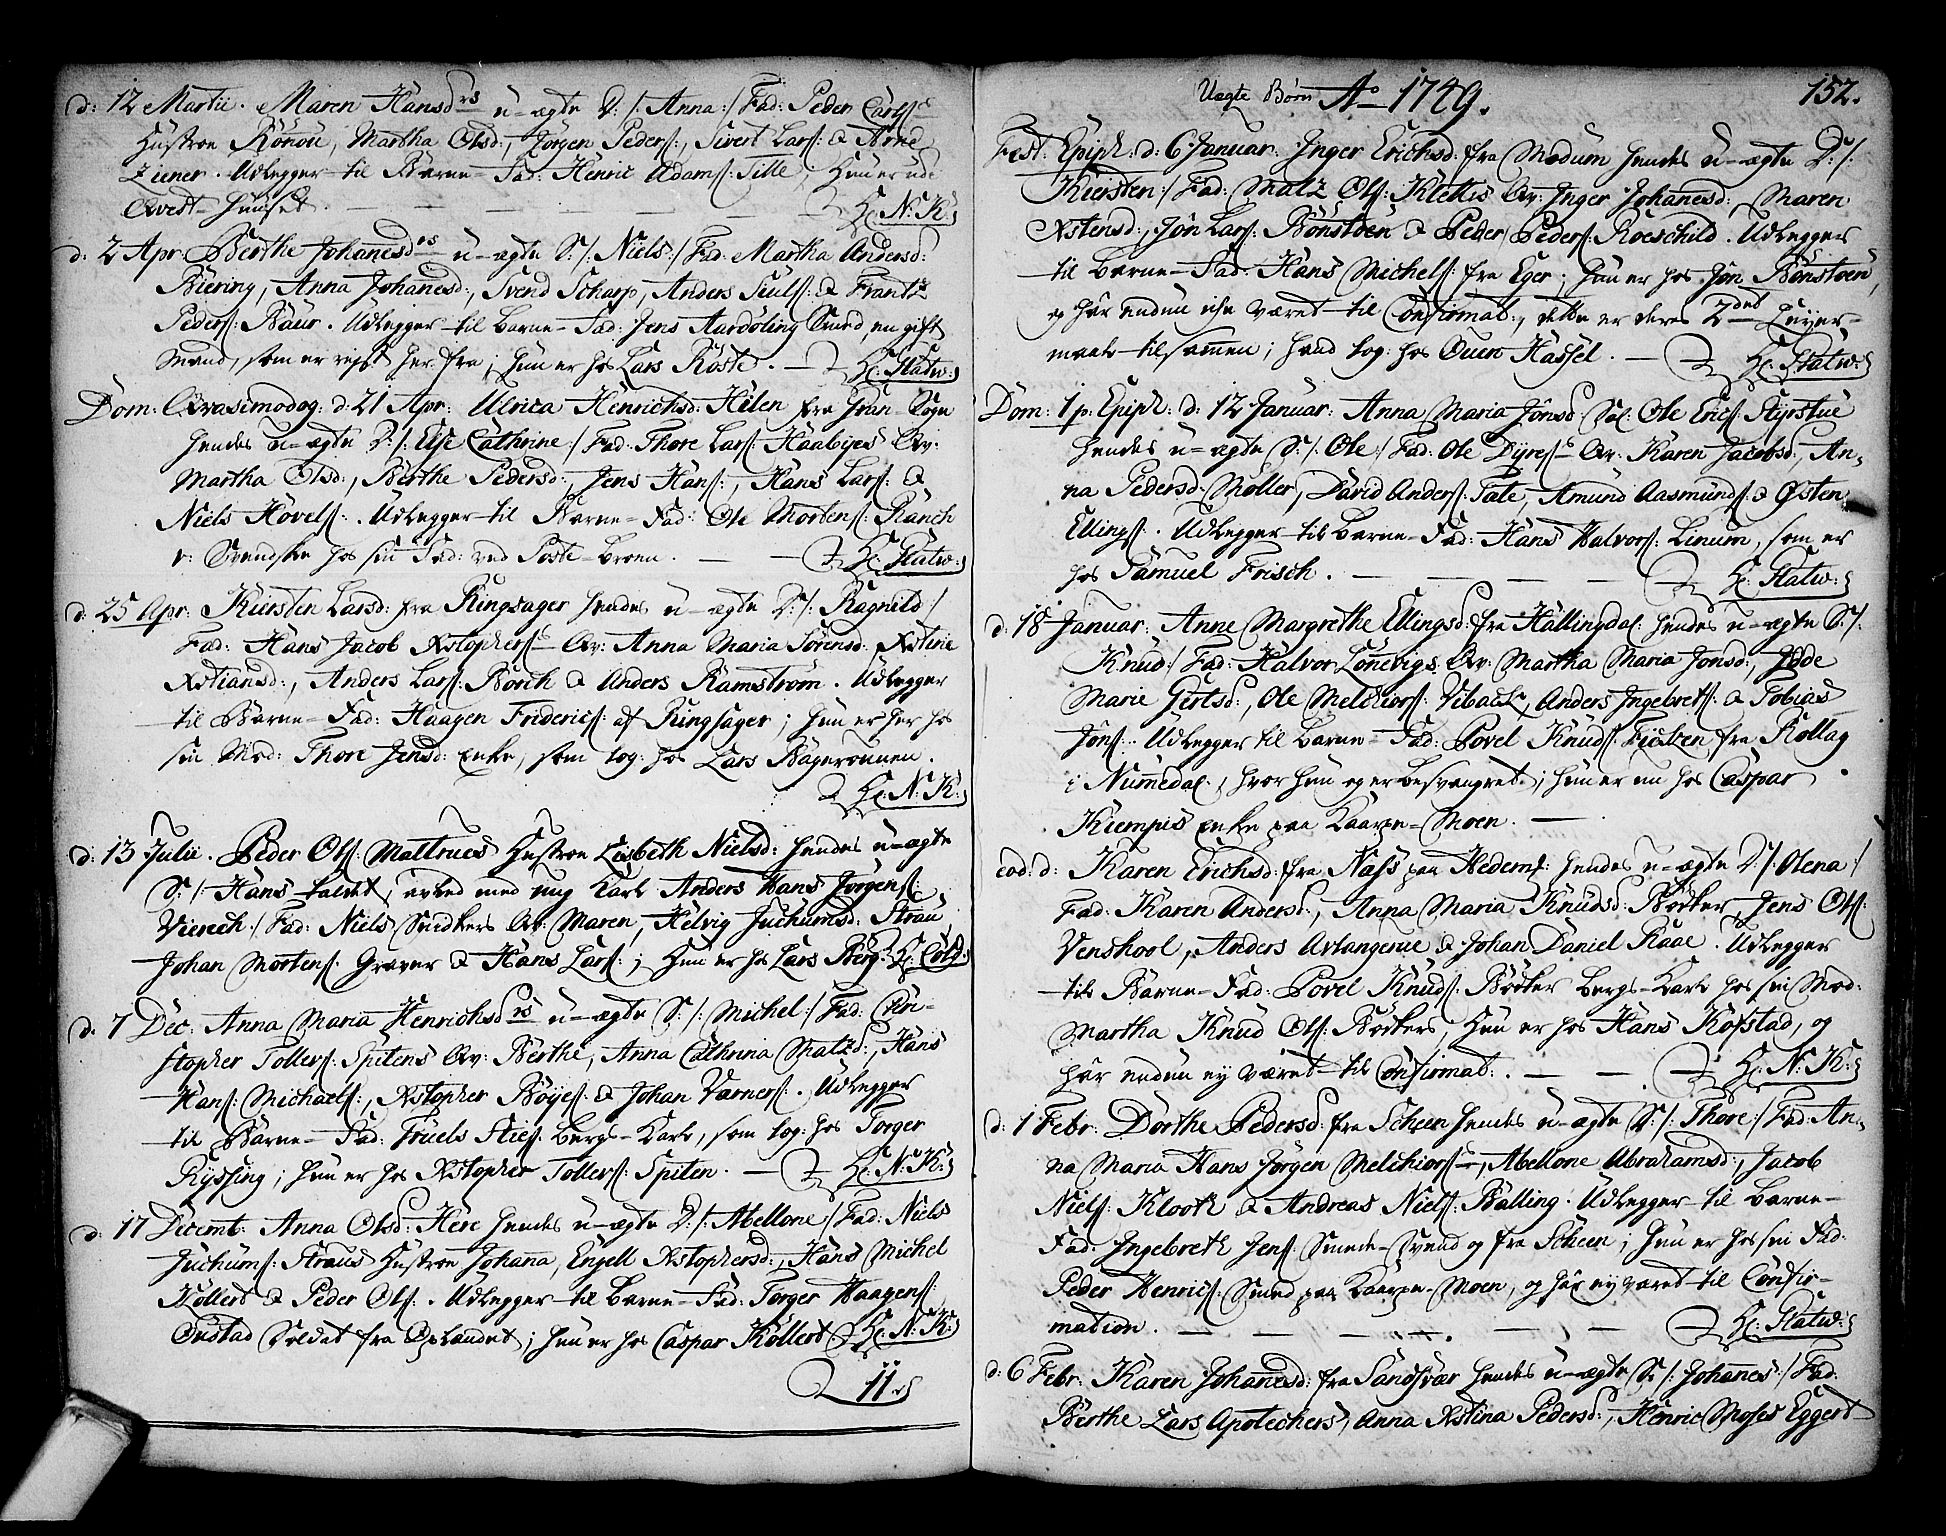 d: 12 Martii. Maren Hansdrs u-ægte D: /: Anna :/ Fad: Peder Carls:
Hustroe Rönou, Martha Olsd:, Jørgen Peders:, Sivert Lars: & Arne
Ziener. Udlegger til Barne-Fad: Henric Adams: Tille; Hun er ude
Qvest-Huuset. — — — H: N: K:
d: 2 Apr: Berthe Johanesdrs u-ægte S: /: Niels :/ Fad: Martha Andersd:
Biering, Anna Johanesd:, Svend Scharp, Anders Pouls: & Frantz
Peders: Baur. Udlegger til Barne-Fad: Jens Aardöling Smed, en gift
Mand, som er rejst her fra; hun er hos Lars Röste. — H: Statw:
Dom: Qvasimodog: d: 21 Apr: Ulrica Henrichsd: Helen fra Gran-Sogn
hendes u-ægte D: /: Else Cathrine :/ Fad: Thore Lars: Haabyes Qv:
Martha Olsd:, Berthe Pedersd:, Jens Hans:, Hans Lars: &
Niels Hövels:. Udlegger til Barne-Fad: Ole Mortens: Ranch
v: Svendske hos sin Fad: ved Poste-broen. — — H: Statw:
d: 25 Apr: Kiersten Larsd: fra Ringsager hendes u-ægte D: /: Ragnild :/
Fad: Hans Jacob Xstophers: Qv: Anna Maria Sörensd: Xstine
Xstiansd:, Anders Lars: Borch & Anders Ramström. Udlegger
til Barne-Fad: Haagen Frideric: af Ringsager; hun er her hos
sin Mod: Thore Jensd: Enke, som log: hos Lars Bageronnen.
H: N: K:
d: 13 Julii. Peder Ols: Mattrues Hustroe Lisbeth Nielsd: hendes u-ægte
S: /: Hans kaldet, avled med ung Karl Anders Hans Jørgens:
Vierech :/ Fad: Niels Snedkers Qv: Maren, Helvig Juchumsd: Strau
Johan Mortens: Graver & Hans Lars:; Hun er hos Lars Berg. H: Cold:
d: 7 Dec: Anna Maria Henrichsdrs u-ægte S: /: Michel :/ Fad: Chri-
stopher Tollers: Spitens Qv: Berthe, Anna Cathrina Matzd:, Hans
Hans: Michaels:, Xstopher Böyes: & Johan Varners:. Udlegger
til Barne-Fad: Truels Sties: Bergs-Karl, som log: hos Torger
Ryssing; hun er hos Xstopher Tollers: Spiten. — H: N: K:
d: 17 Decemb: Anna Olsd: Here hendes u-ægte D: /: Abellone :/ Fad: Niels
Juchums: Straus Hustroe Johana, Engell Xstophersd:, Hans Michel
Köllert & Peder Ols:. Udlegger til Barne-Fad: Torger Haagens:
Onstad Soldat fra Oplandet; hun er hos Caspar Köllert H: N: K:
11
Uægte Børn Ao 1749. 152.
Fest: Epiph: d: 6 Januar: Inger Erichsd: fra Modum hendes u-ægte D: /:
Kiersten :/ Fad: Matz Ols: Klettis Qv: Inger Johanesd: Maren
Xstensd:, Jon Lars: Bönstoen & Peder Peders: Roeschild. Udlegger
til Barne-Fad: Hans Michels: fra Eger; hun er hos Jon Bönstoen,
og har endnu ike været til Confirmat:, dette er deres 2det Leyer-
maal tilsammen; hand log: hos Ouen Hassel. — H: Statw:
Dom: 1 p: Epiph: d: 12 Januar: Anna Maria Jonsd: Sal: Ole Erics: Styrstue
hendes u-ægte S: /: Ole :/ Fad: Ole Dyres: Qv: Karen Jacobsd:, An-
na Pedersd: Møller, David Anders: Tate, Amund Aasmunds: & Østen
Ellings:. Udlegger til Barne-Fad: Hans Halvors: Linum, som er
hos Samuel Frisch. — — — H: Statw:
d: 18 Januar: Anne Margrethe Ellingsd: fra Hallingdal: hendes u-ægte S: /:
Knud :/ Fad: Halvor Lönnevigs Qv: Martha Maria Jonsd:, Jode
Marie Girtsd:, Ole Melchiors: Vibach, Anders Ingebrets: & Tobias
Jöns:. Udlegger til Barne-Fad: Povel Knuds: Fielzen fra Rollag
i Numedal, hvor hun og er besvangret; hun er nu hos Caspar
Kiempis Enke paa Kaarpe-Moen. —
eod: d: Karen Erichsd: fra Nass paa Hedem: hendes u-ægte D: /: Olena :/
Fad: Karen Andersd:, Anna Maria Knudsd: Böcker, Jens Ols:
Venskool, Anders Avlangerue & Johan Daniel Raae. Udlegger
til Barne-Fad: Povel Knuds: Böcker Bergs-Karl hos sin Mod:
Martha Knud Ols: Böckers, Hun er hos Hans Kofstad, og
har endnu ey været til Confirmat:. — — H: N: K:
d: 1 Febr: Dorthe Pedersd: fra Scheen hendes u-ægte S: /: Thore :/ Fad: An-
na Maria Hans Jørgen Melchiors:, Abellone Abrahamsd:, Jacob
Niels: Klooth & Andreas Niels: Balling. Udlegger til Barne-
Fad: Ingebreth Jens: Smede-Svend og fra Scheen; hun er hos sin Fad:
Peder Henrics: Smed paa Kaarpe-Moen, og har ey været til Confir-
mation. — — — H: Statw:
d: 6 Febr: Karen Johanesd: fra Sandsvær hendes u-ægte S: /: Johanes :/ Fad:
Berthe Lars Apotechers, Anna Xstina Pedersd:, Henric Moses Eggert